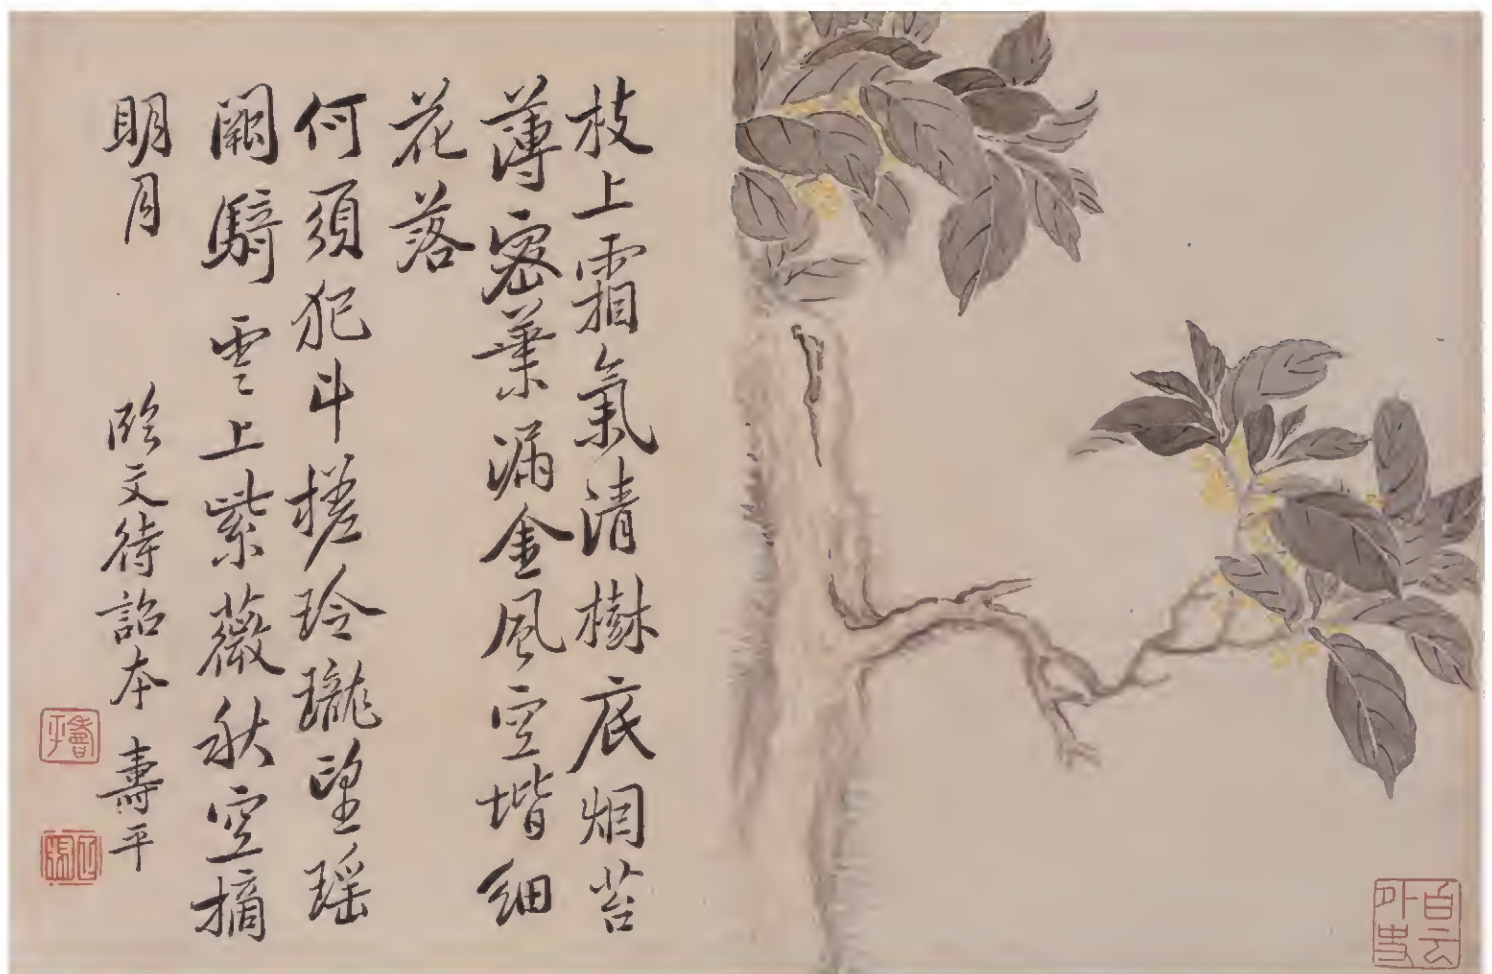 枝上霜氣清樹底烟苔
薄密葉漏金風空堦細
花落
何須犯斗槎玲瓏望瑶
闕騎雲上紫薇秋空摘
明月
臨文待詔本 壽平
白云
外史